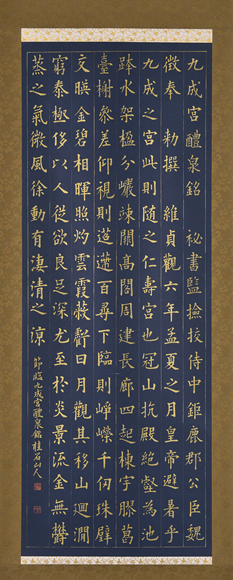 九成宮醴泉銘 祕書監撿挍侍中鉅鹿郡公臣魏
徵奉 勅撰 維貞觀六年孟夏之月皇帝避暑乎
九成之宮此則隨之仁壽宮也冠山抗殿絶壑為池
跨水架楹分巖竦闕高閣周建長廊四起棟宇膠葛
臺榭參差仰視則迢遰百尋下臨則崢嶸千仞珠璧
交暎金碧相暉照灼雲霞蔽虧日月觀其移山迴澗
窮泰極侈以人從欲良足深尤至於炎景流金無鬱
蒸之氣微風徐動有淒清之涼
節臨九成宮醴泉銘桂石山人